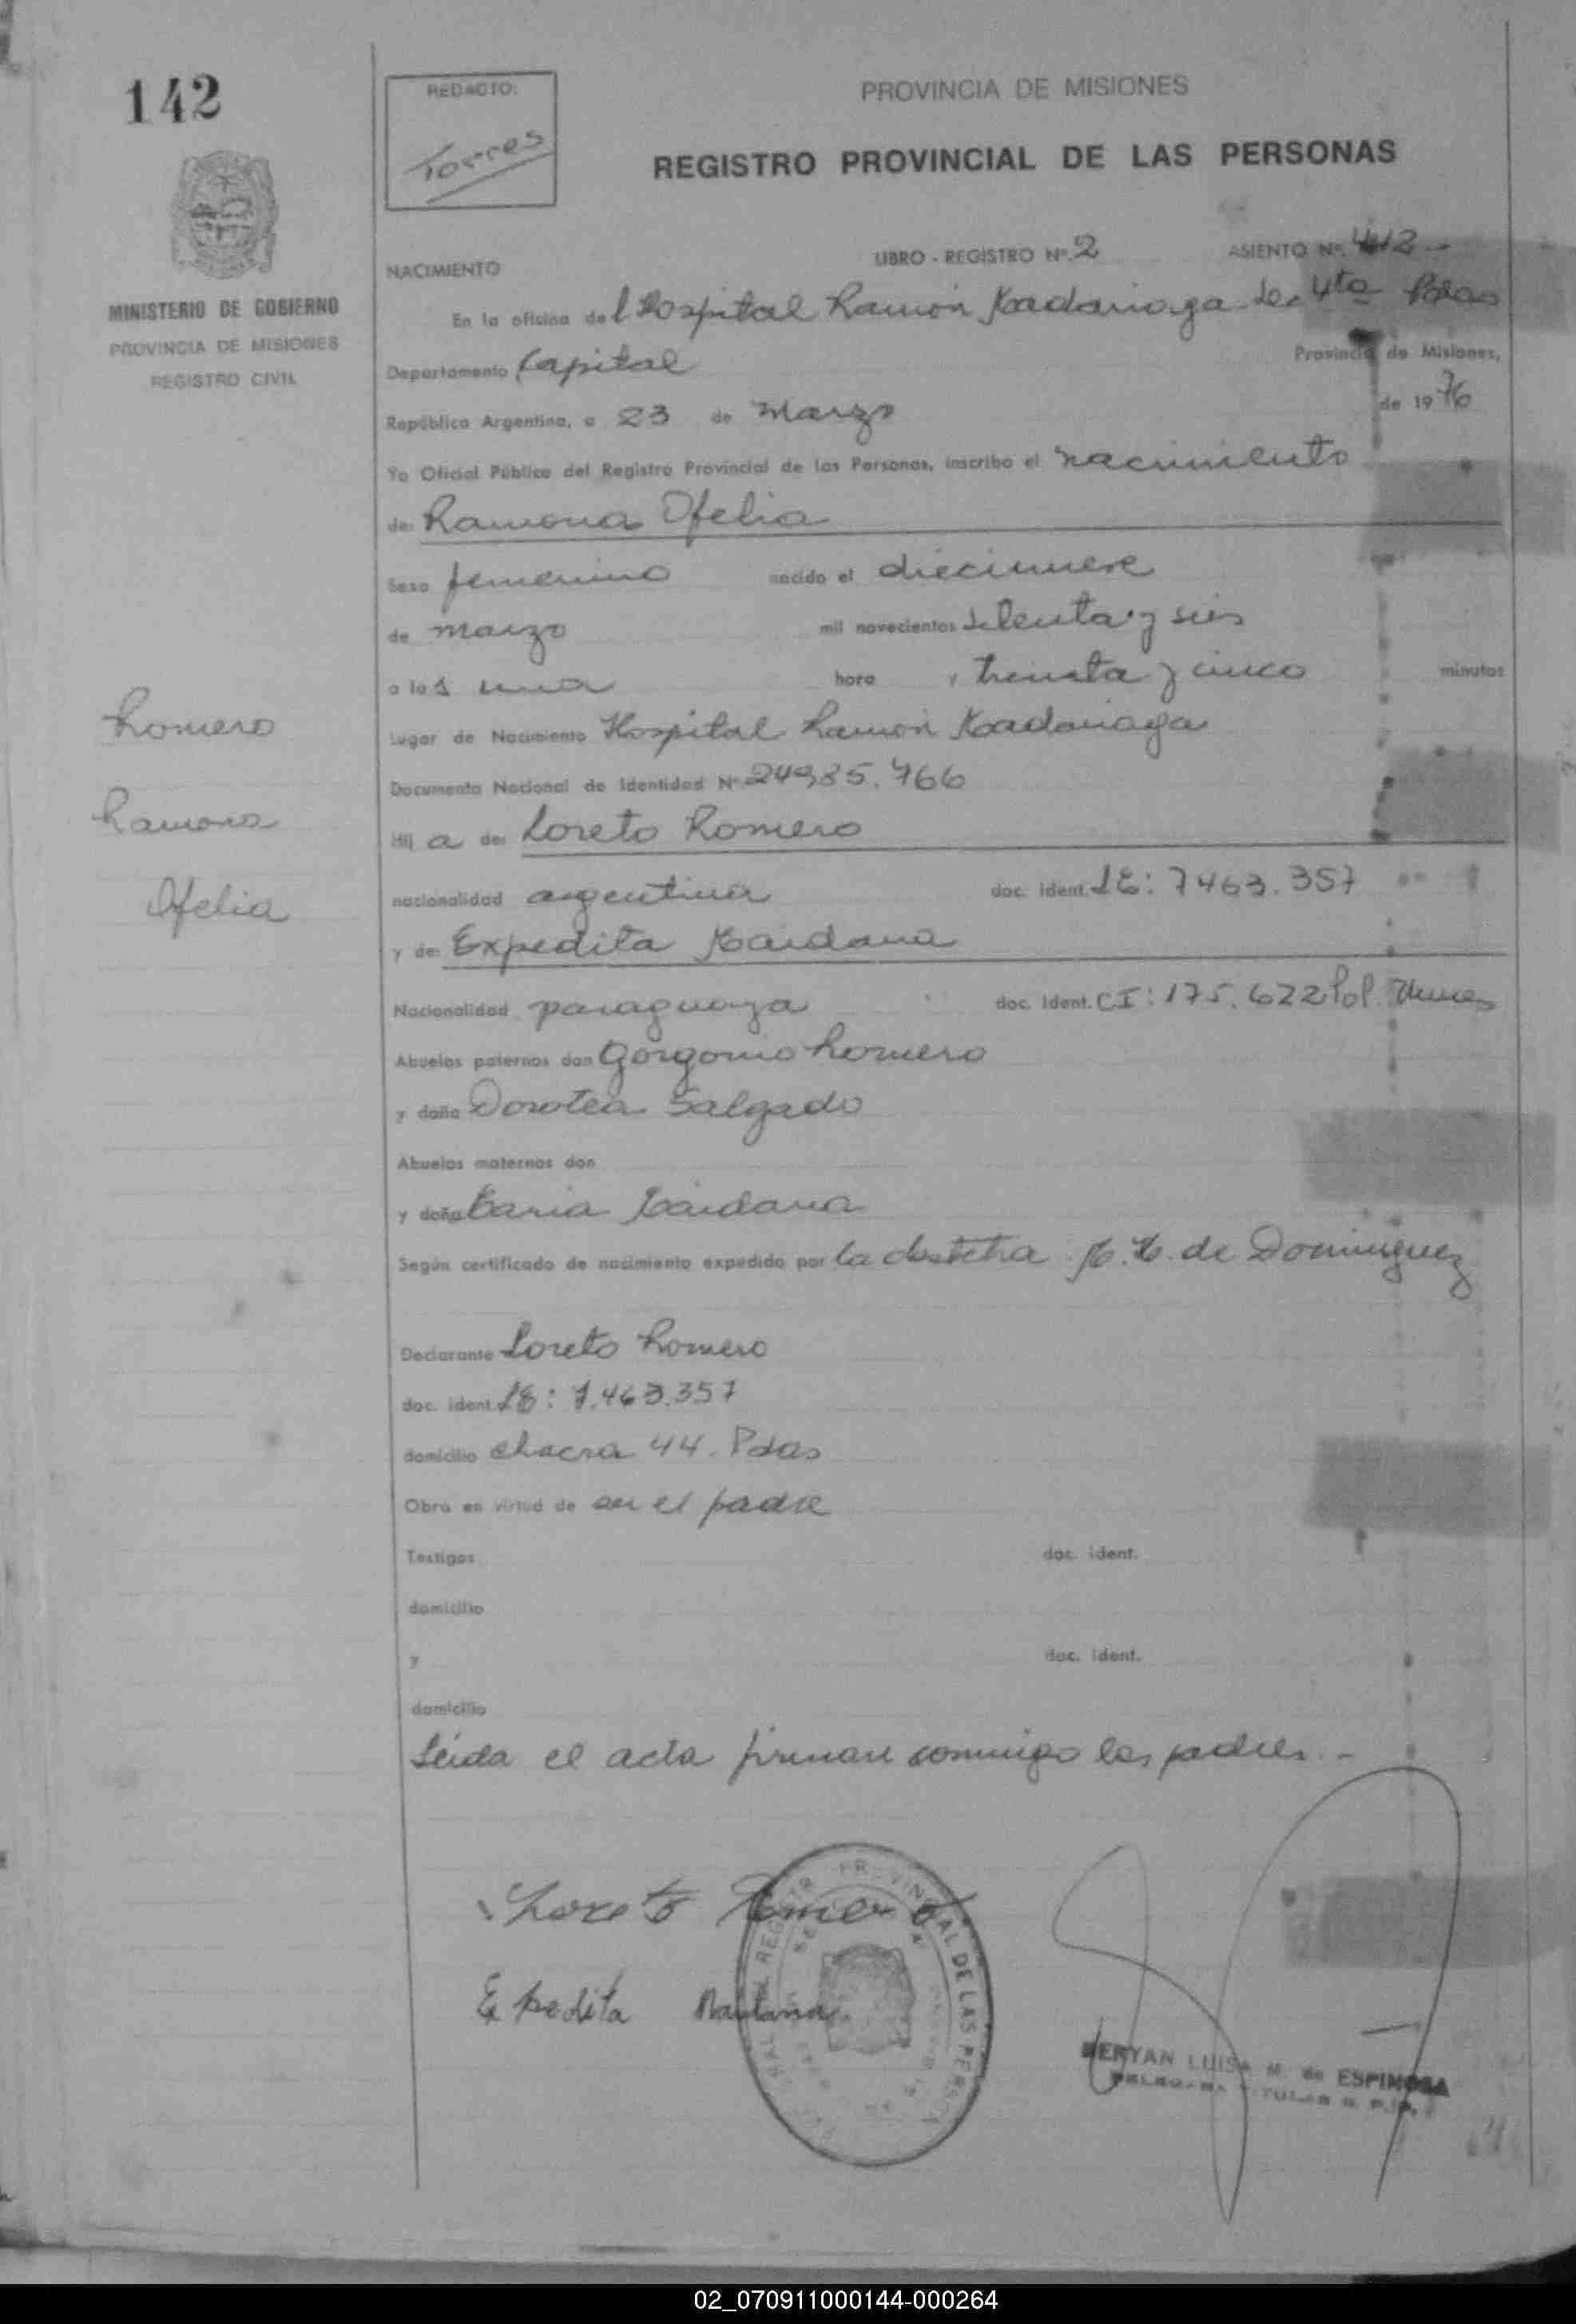 142
REDACTO:
Torres
PROVINCIA DE MISIONES
REGISTRO PROVINCIAL DE LAS PERSONAS
MINISTERIO DE GOBIERNO
PROVINCIA DE MISIONES
REGISTRO CIVIL
NACIMIENTO
LIBRO - REGISTRO Nº. 2 ASIENTO Nº. 412
En la oficina del Hospital Ramón Madariaga Sec 4ta Pdas
Departamento Capital Provincia de Misiones,
República Argentina, a 23 de Marzo de 1976
Yo Oficial Público del Registro Provincial de las Personas, inscribo el nacimiento
de: Ramona Ofelia
Sexo femenino nacido el diecinueve
de marzo mil novecientos setenta y seis
a las una hora y treinta y cinco minutos
Lugar de Nacimiento Hospital Ramón Madariaga
Documento Nacional de Identidad Nº 24985.766
Hij a de: Loreto Romero
nacionalidad argentina doc. ident. LE: 7463.357
y de: Expedita Maidana
Nacionalidad paraguaya doc. ident. CI: 175.622 Pol.
Abuelos paternos don Gorgonio Romero
y doña Dorotea Salgado
Abuelos maternos don
y doña Maria Maidana
Según certificado de nacimiento expedido por la obstetra M. M. de Dominguez
Declarante Loreto Romero
doc. ident. LE: 7.463.357
domicilio chacra 44. Pdas
Obra en virtud de ser el padre
Testigos doc. ident.
domicilio
y doc. ident.
domicilio
Leida el acta firman conmigo los padres.-
Romero
Ramona
Ofelia
Loreto Romero
Expedita Maidana
REGISTRO PROVINCIAL DE LAS PERSONAS
LUISA M. de ESPINOSA
02_070911000144-000264